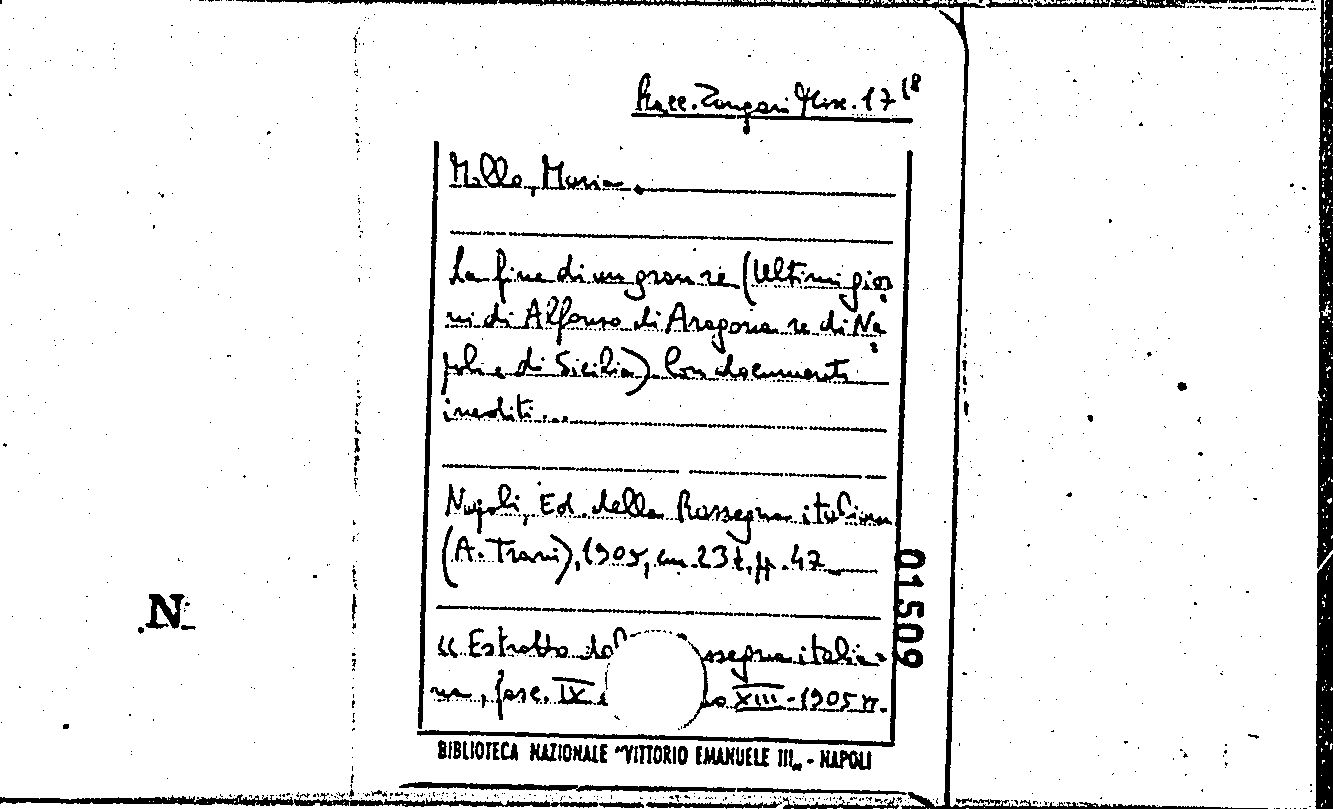 Racc. Zangari Misc. 17 18
Mollo, Maria.
La fine di un gran re (Ultimi gior=
ni di Alfonso di Aragona re di Na=
poli e di Sicilia) Con documenti
inediti...
Napoli, Ed. della Rassegna italiana
(A. Trani), 1905, cm. 23½, pp. 47
« Estratto dal ssegna italia=
na, fasc. IX o XIII - 1905 ».
01509
N
BIBLIOTECA NAZIONALE "VITTORIO EMANUELE III„ - NAPOLI